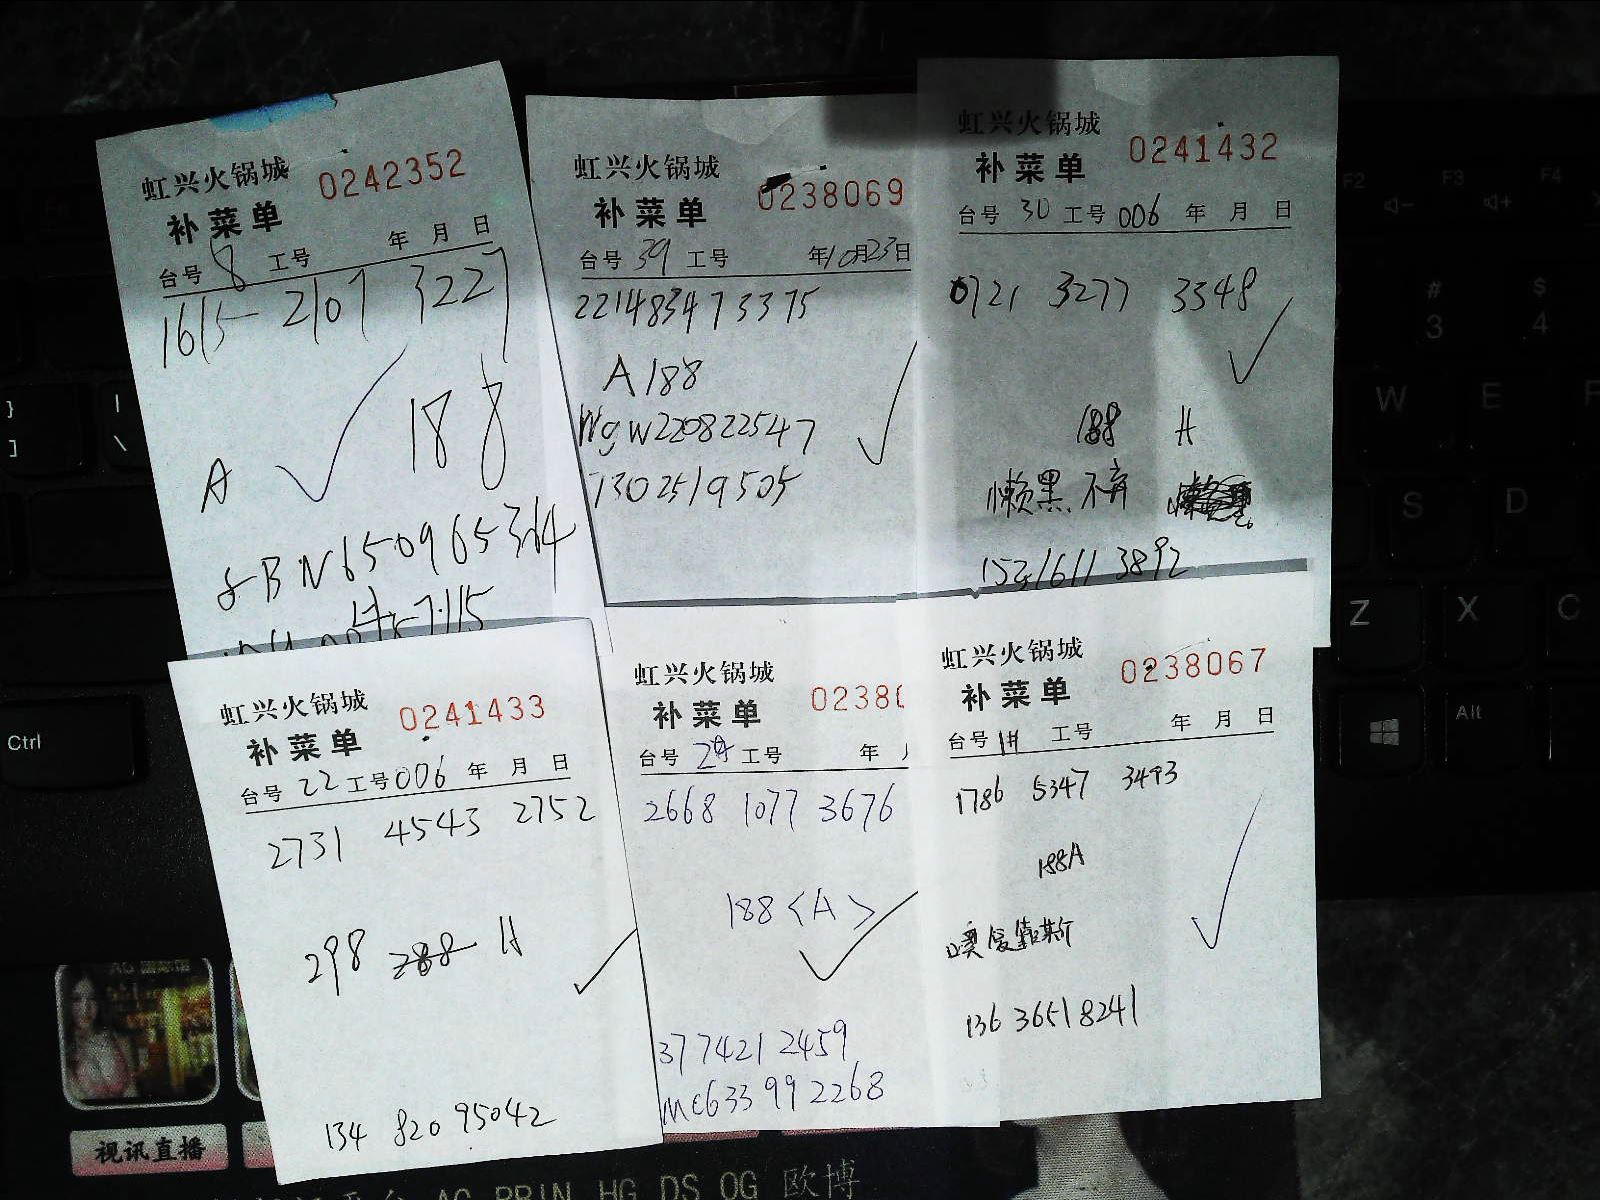 虹兴火锅城 0242352
补菜单
台号 8 工号 年 月 日
1615 2107 3227
188
A
650965364
虹兴火锅城 0238069
补菜单
台号 39 工号 年10月23日
221483473375
A188
Wgw220822547
1302519505
虹兴火锅城 0241432
补菜单
台号 30 工号 006 年 月 日
0721 3277 3348
188 H
懒黑不弃
虹兴火锅城 0241433
补菜单
台号 22 工号 006 年 月 日
2731 4543 2752
298 288 H
134 820 95042
虹兴火锅城 0238
补菜单
台号 工号 年
2668 1077 3676
188<A>
3774212459
mc633992268
虹兴火锅城 0238067
补菜单
台号 工号 年 月 日
1786 5347 3493
188A
136 36518241
Ctrl
Alt
F2
F3
F4
#
3
$
4
W
E
S
D
Z
X
C
视讯直播
HG DS OG 欧博